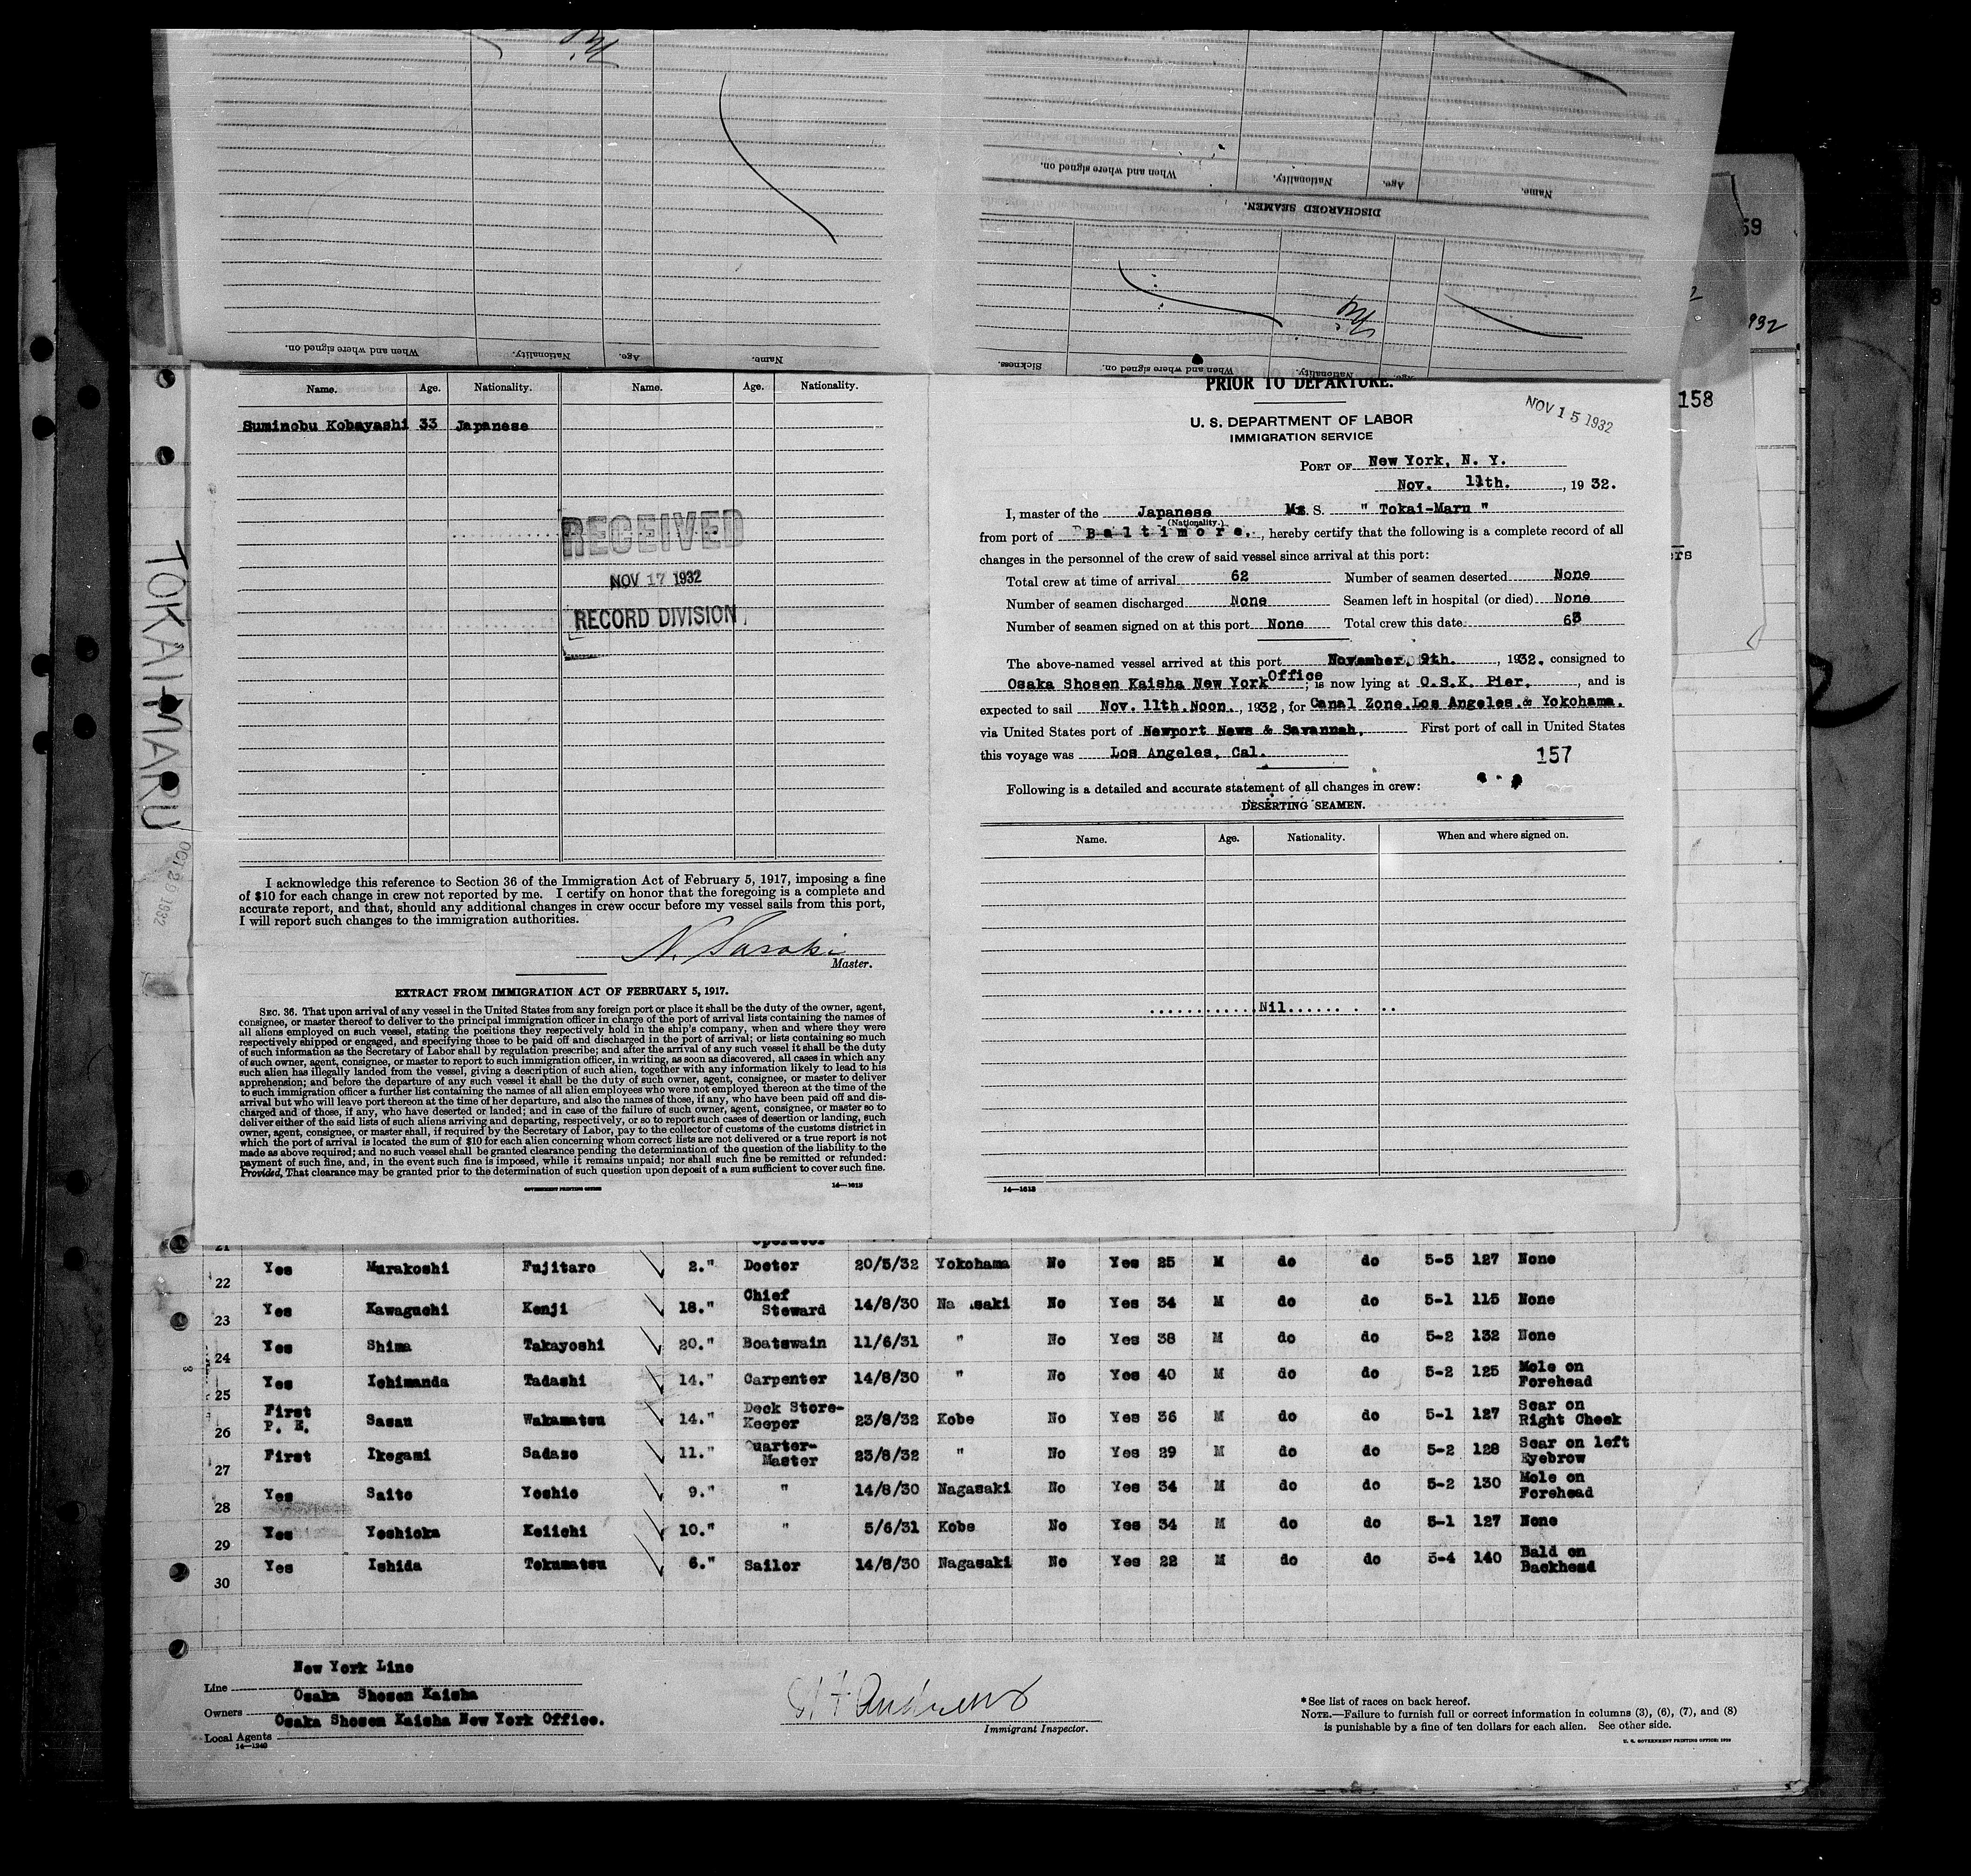 When and where signed on.
Nationality.
Age.
Name.
DISCHARGED SEAMEN.
Sickness.
When and where signed on.
Nationality.
Age.
When and where signed on.
Nationality.
Age.
Name.
59
932
158
TOKAI MARU
OCT 20 1932
Name. Age. Nationality. Name. Age. Nationality.
Suminobu Kobayashi 33 Japanese
RECEIVED
NOV 17 1932
RECORD DIVISION
I acknowledge this reference to Section 36 of the Immigration Act of February 5, 1917, imposing a fine
of $10 for each change in crew not reported by me. I certify on honor that the foregoing is a complete and
accurate report, and that, should any additional changes in crew occur before my vessel sails from this port,
I will report such changes to the immigration authorities.
N. Sasaki
Master.
EXTRACT FROM IMMIGRATION ACT OF FEBRUARY 5, 1917.
SEC. 36. That upon arrival of any vessel in the United States from any foreign port or place it shall be the duty of the owner, agent,
consignee, or master thereof to deliver to the principal immigration officer in charge of the port of arrival lists containing the names of
all aliens employed on such vessel, stating the positions they respectively hold in the ship's company, when and where they were
respectively shipped or engaged, and specifying those to be paid off and discharged in the port of arrival; or lists containing so much
of such information as the Secretary of Labor shall by regulation prescribe; and after the arrival of any such vessel it shall be the duty
of such owner, agent, consignee, or master to report to such immigration officer, in writing, as soon as discovered, all cases in which any
such alien has illegally landed from the vessel, giving a description of such alien, together with any information likely to lead to his
apprehension; and before the departure of any such vessel it shall be the duty of such owner, agent, consignee, or master to deliver
to such immigration officer a further list containing the names of all alien employees who were not employed thereon at the time of the
arrival but who will leave port thereon at the time of her departure, and also the names of those, if any, who have been paid off and dis-
charged and of those, if any, who have deserted or landed; and in case of the failure of such owner, agent, consignee, or master so to
deliver either of the said lists of such aliens arriving and departing, respectively, or so to report such cases of desertion or landing, such
owner, agent, consignee, or master shall, if required by the Secretary of Labor, pay to the collector of customs of the customs district in
which the port of arrival is located the sum of $10 for each alien concerning whom correct lists are not delivered or a true report is not
made as above required; and no such vessel shall be granted clearance pending the determination of the question of the liability to the
payment of such fine, and, in the event such fine is imposed, while it remains unpaid; nor shall such fine be remitted or refunded:
Provided, That clearance may be granted prior to the determination of such question upon deposit of a sum sufficient to cover such fine.
GOVERNMENT PRINTING OFFICE 14—1613
PRIOR TO DEPARTURE.
NOV 15 1932
U. S. DEPARTMENT OF LABOR
IMMIGRATION SERVICE
PORT OF New York, N. Y.
Nov. 11th. , 1932.
I, master of the Japanese M. S. " Tokai-Maru "
(Nationality.)
from port of Baltimore. , hereby certify that the following is a complete record of all
changes in the personnel of the crew of said vessel since arrival at this port:
Total crew at time of arrival 62 Number of seamen deserted None
Number of seamen discharged None Seamen left in hospital (or died) None
Number of seamen signed on at this port None Total crew this date 63
The above-named vessel arrived at this port November 9th. , 1932. consigned to
Osaka Shosen Kaisha New York Office ; is now lying at O.S.K. Pier. , and is
expected to sail Nov. 11th.Noon. , 1932, for Canal Zone.Los Angeles.& Yokohama.
via United States port of Newport News & Savannah. First port of call in United States
this voyage was Los Angeles, Cal.
157
Following is a detailed and accurate statement of all changes in crew:
DESERTING SEAMEN.
Name. Age. Nationality. When and where signed on.
............Nil...... . ..
14—1613
21 Operator
Yes Murakoshi Fujitaro 2." Doctor 20/5/32 Yokohama No Yes 25 M do do 5-5 127 None
22
Yes Kawaguchi Kenji 18." Chief Steward 14/8/30 Na saki No Yes 34 M do do 5-1 115 None
23
Yes Shima Takayoshi 20." Boatswain 11/6/31 " No Yes 38 M do do 5-2 132 None
24
Yes Ichimanda Tadashi 14." Carpenter 14/8/30 " No Yes 40 M do do 5-2 125 Mole on Forehead
25
First P. E. Sasau Wakamatsu 14." Deck Store-Keeper 23/8/32 Kobe No Yes 36 M do do 5-1 127 Scar on Right Cheek
26
First Ikegami Sadaso 11." Quarter-Master 23/8/32 " No Yes 29 M do do 5-2 128 Scar on left Eyebrow
27
Yes Saito Yoshio 9." " 14/8/30 Nagasaki No Yes 34 M do do 5-2 130 Mole on Forehead
28
Yes Yoshioka Keiichi 10." " 5/6/31 Kobe No Yes 34 M do do 5-1 127 None
29
Yes Ishida Tokumatsu 6." Sailor 14/8/30 Nagasaki No Yes 22 M do do 5-4 140 Bald on Backhead
30
Line New York Line
Owners Osaka Shosen Kaisha
Local Agents Osaka Shosen Kaisha New York Office.
14—1240
Andrews
Immigrant Inspector.
*See list of races on back hereof.
NOTE.—Failure to furnish full or correct information in columns (3), (6), (7), and (8)
is punishable by a fine of ten dollars for each alien. See other side.
U. S. GOVERNMENT PRINTING OFFICE: 1929